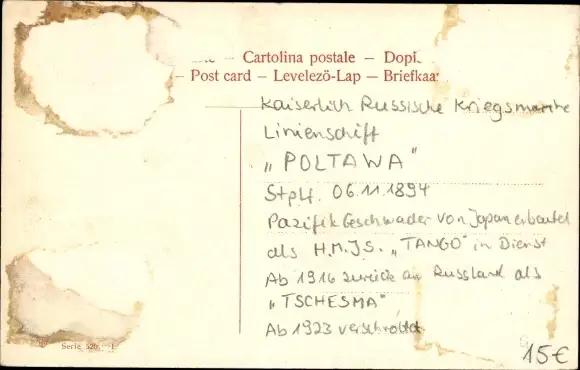 – Cartolina postale – Dopi
– Post card – Levelező-Lap – Briefkaa
Kaiserlich Russische Kriegsmarine
Linienschiff
„POLTAWA"
Stplf. 06.11.1894
Pazifik Geschwader von Japan erbeutet
als H.M.J.S. „TANGO" in Dienst
Ab 1916 zurück an Russland als
„TSCHESMA"
Ab 1923 verschrottet
Serie
15€